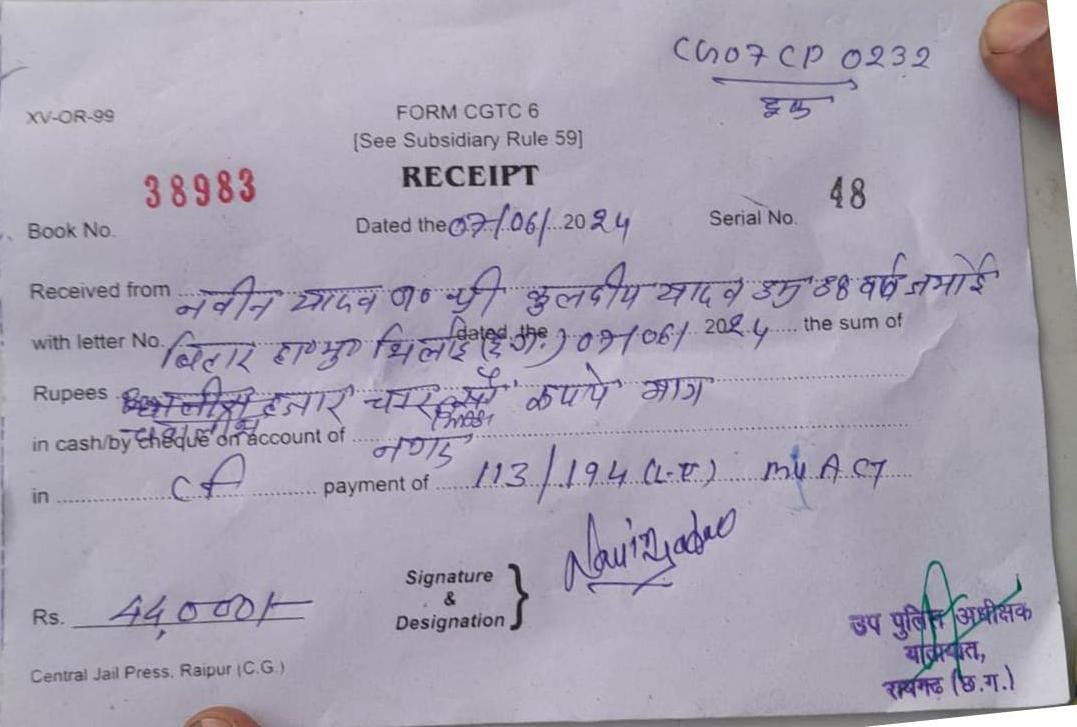 CG07CP 0232
XV-OR-99
FORM CGTC 6
[See Subsidiary Rule 59]
RECEIPT
38983
48
Book No.
Dated the 07/06/2024
Serial No.
Received from नवीन यादव श्री कुलदीप यादव उम्र 38 वर्ष
with letter No. dated the 07/06/2024 the sum of
भिलाई
Rupees हजार चार सौ रूपये मात्र
in cash/by cheque on account of नगद
in payment of 113/194 M.V ACT
Signature
&
Designation
Rs. 44,000/-
उप पुलिस अधीक्षक
यातायात,
रायगढ (छ.ग.)
Central Jail Press, Raipur (C.G.)